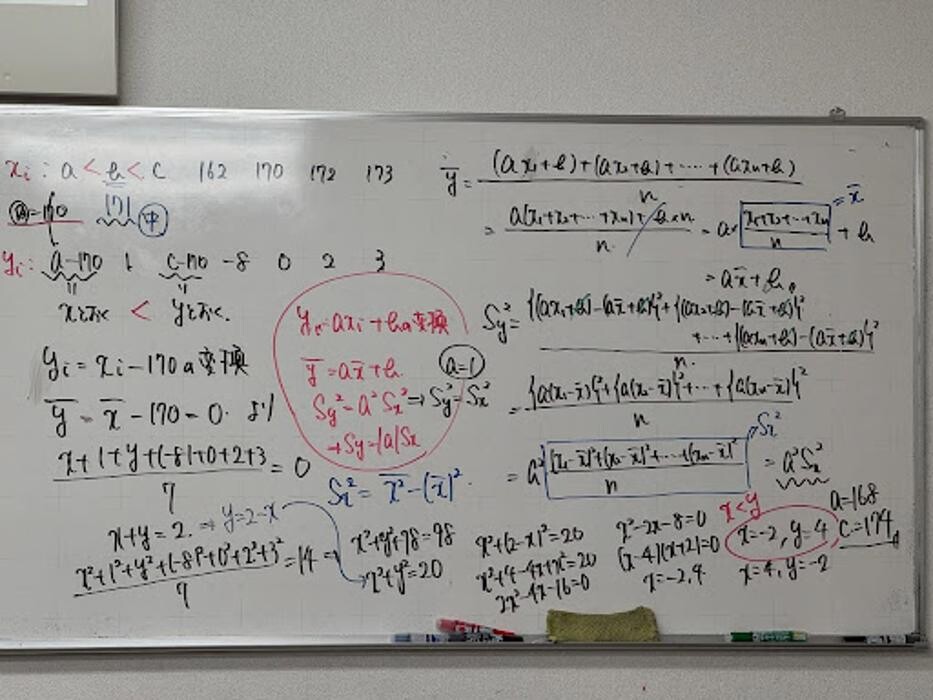 xᵢ : a < b < c 162 170 172 173
170
171 中
yᵢ : a-170 1 c-170 -8 0 2 3
xとおく < yとおく.
yᵢ = xᵢ - 170 の変換
ȳ = x̄ - 170 = 0. より
(x+1+y+(-8)+0+2+3)/7 = 0
x+y=2. ⇒ y=2-x
(x²+1²+y²+(-8)²+0²+2²+3²)/7 = 14 ⇒ x²+y²+78=98
x²+y²=20
yᵢ = axᵢ + b の変換
ȳ = ax̄ + b.
Sy² = a²Sx² → Sy² = Sx²
a=1
→ Sy = |a|Sx
Sx² = x̄² - (x̄)².
ȳ = ((ax₁+b)+(ax₂+b)+……+(axₙ+b))/n
= (a(x₁+x₂+…+xₙ)+b×n)/n = a× (x₁+x₂+…+xₙ)/n + b
= x̄
= ax̄ + b.
Sy² = ({(ax₁+b)-(ax̄+b)}²+{(ax₂+b)-(ax̄+b)}²
+…+{(axₙ+b)-(ax̄+b)}²)/n.
= ({a(x₁-x̄)}²+{a(x₂-x̄)}²+…+{a(xₙ-x̄)}²)/n
= a² ((x₁-x̄)²+(x₂-x̄)²+…+(xₙ-x̄)²)/n = a²Sx²
Sx²
x²+(2-x)²=20
x²+4-4x+x²=20
2x²-4x-16=0
x²-2x-8=0
(x-4)(x+2)=0
x=-2,4
x<y
x=-2, y=4
x=4, y=-2
a=168
c=174